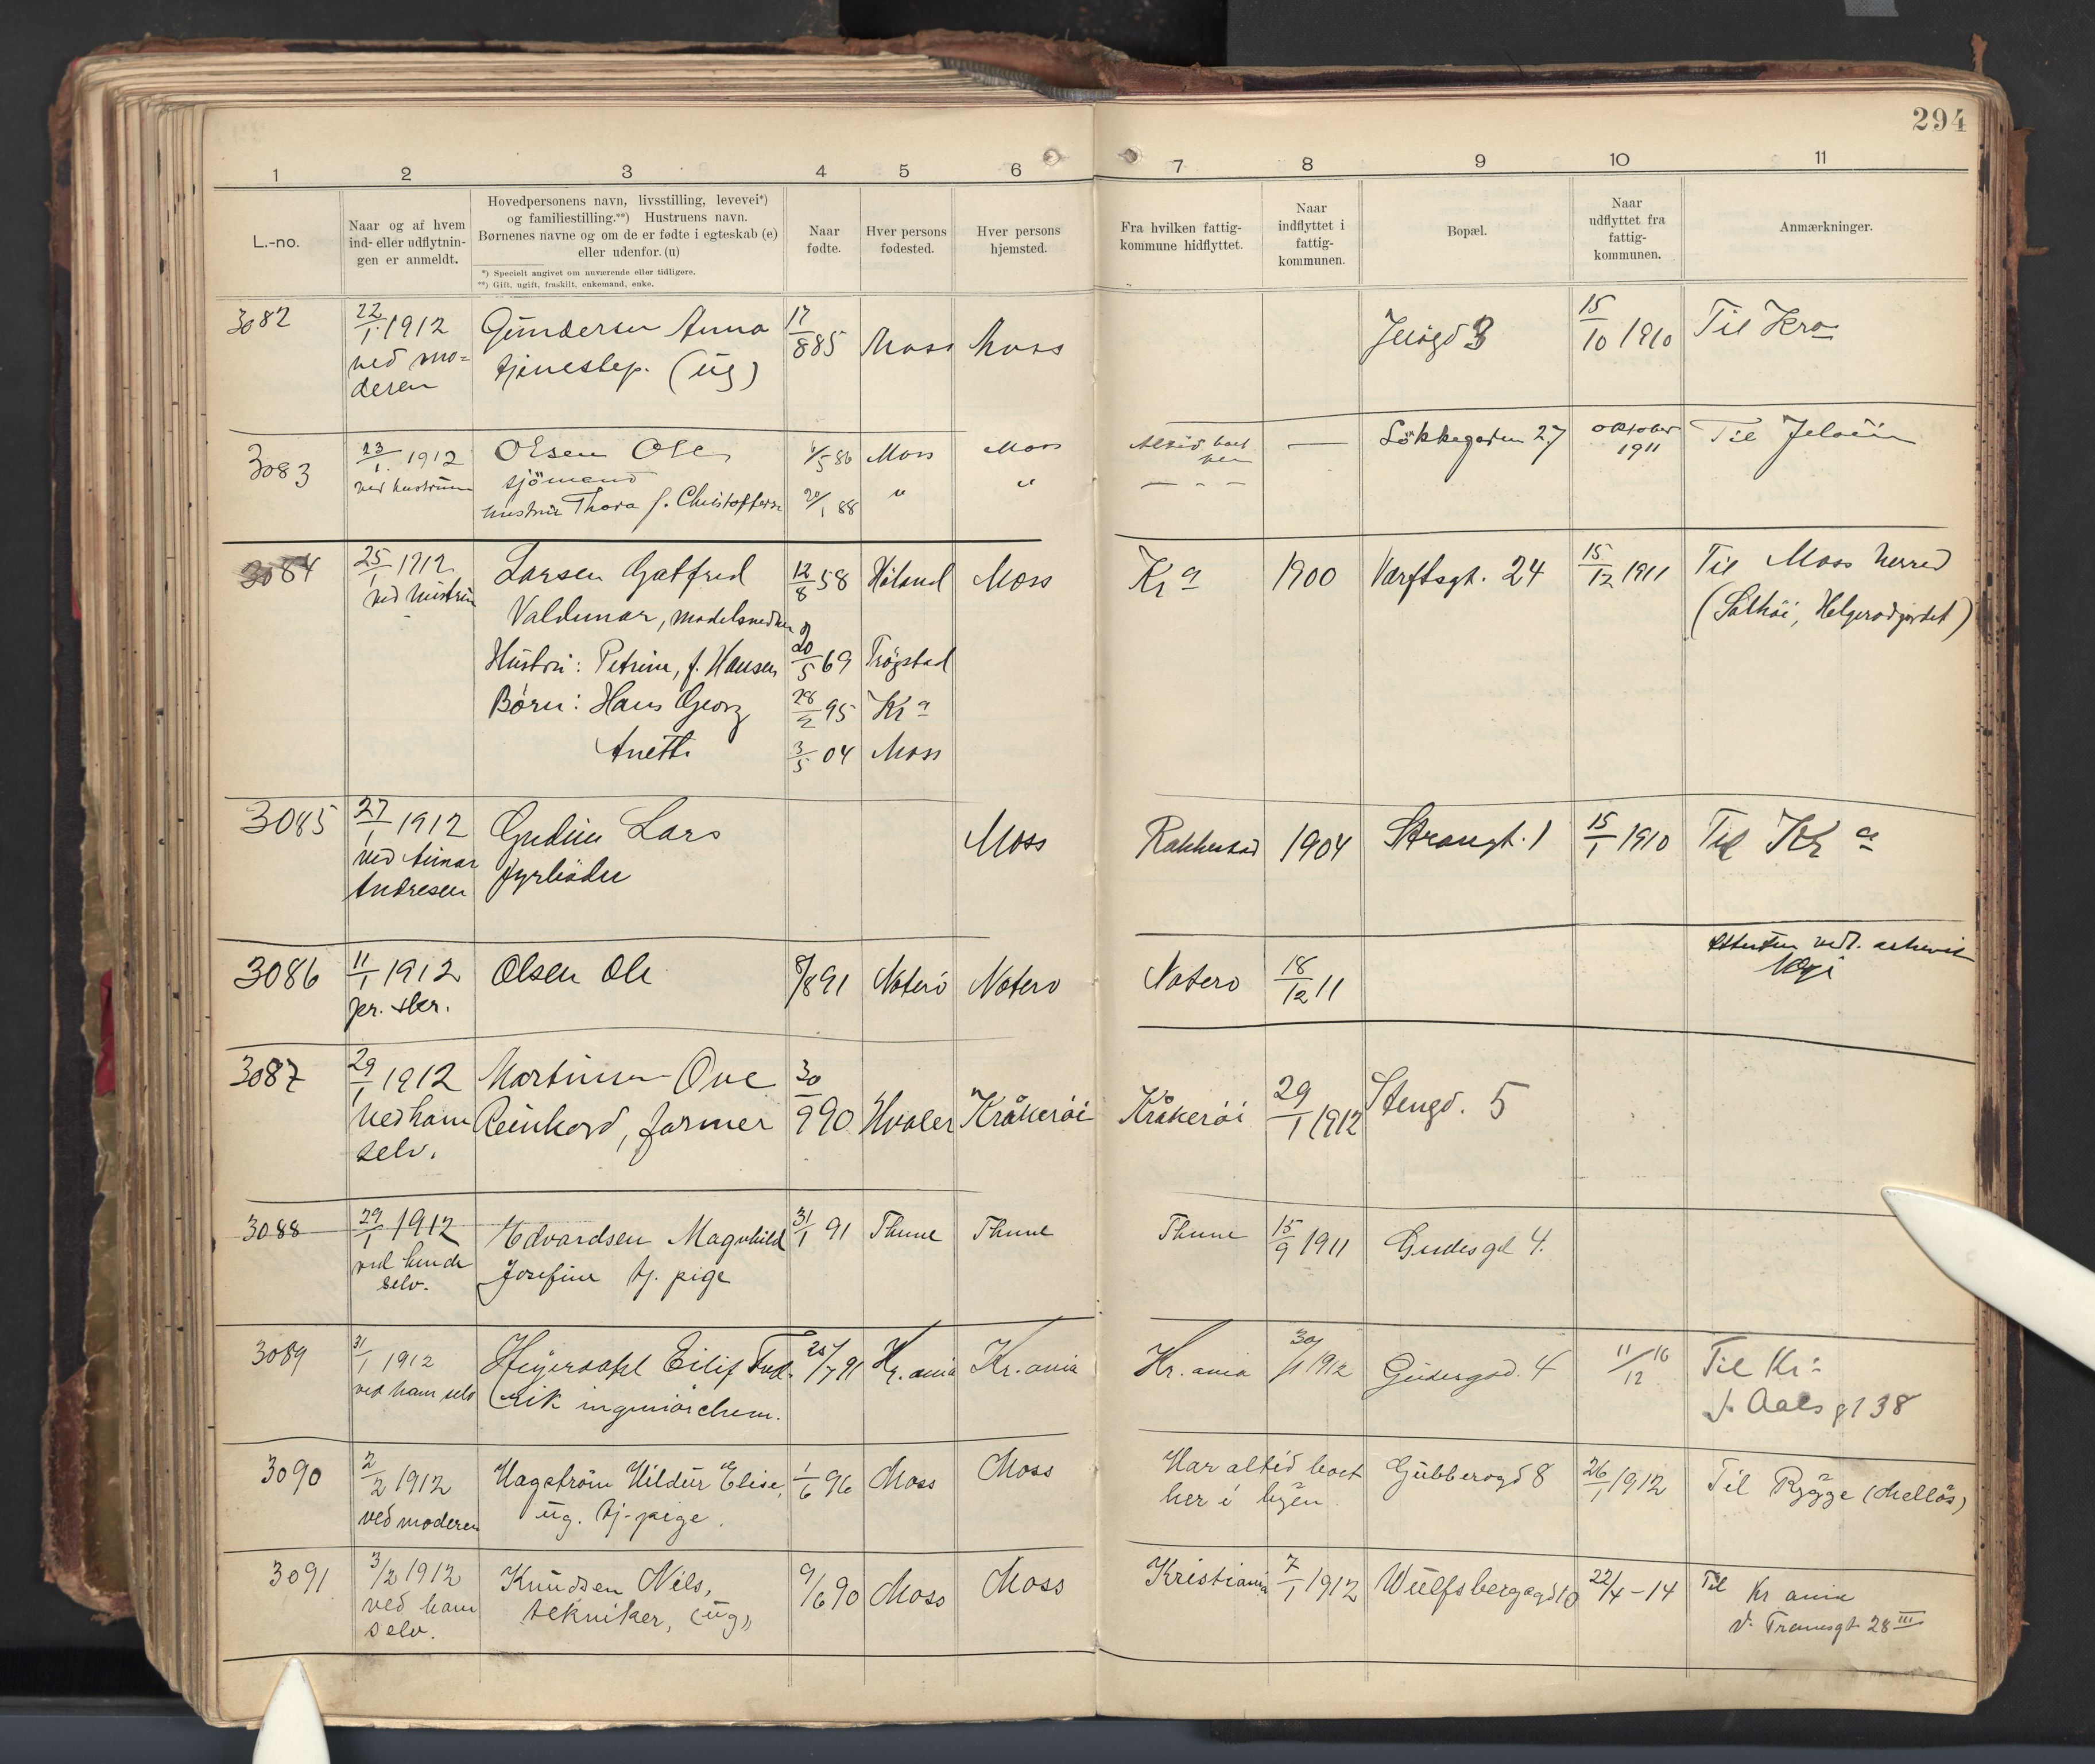 294
1 2 3 4 5 6 7 8 9 10 11
L.-no.
Naar og af hvem
ind- eller udflytnin-
gen er anmeldt.
Hovedpersonens navn, livsstilling, levevei*)
og familiestilling.**) Hustruens navn.
Børnenes navne og om de er fødte i egteskab (e)
eller udenfor. (u)
*) Specielt angivet om nuværende eller tidligere.
**) Gift, ugift, fraskilt, enkemand, enke.
Naar
fødte.
Hver persons
fødested.
Hver persons
hjemsted.
Fra hvilken fattig-
kommune hidflyttet.
Naar
indflyttet i
fattig-
kommunen.
Bopæl.
Naar
udflyttet fra
fattig-
kommunen.
Anmærkninger.
3082 22/1 1912 Gundersen Anna 17/8 85 Moss Moss 15/10 1910 Til Kra
ved mo-
deren
tjenestep. (ug)
3083 23/1 1912 Olsen Ole 1/5 86 Moss Moss Altid boet — Løkkegaden 27 oktober Til Jeløen
her 1911
ved hustruen sjömand
hustru Thora f. Christoffersen 20/1 88 " " — - —
3084 25/1 1912 Larsen Gotfred 12/8 58 Høland Moss Kr a 1900 Varftsgt. 24 15/12 1911 Til Moss herred
ved hustruen Valdemar, modelsnedker (Solhöi, Helgerødgjerdet)
og
Hustru: Petrine, f. Hansen 20/5 69 Trögstad
Børn: Hans Georg 28/2 95 Kr a
Anette 3/5 04 Moss
3085 27/1 1912 Gudim Lars Moss Rakkestad 1904 Strangt. 1 15/1 1910 Til Kr a
ved Annar fyrbøder
Andresen
3086 11/1 1912 Olsen Ole 8/8 91 Nøterö Nøterö Nøterö 18/12 11
pr. skr.
3087 29/1 1912 Martinsen Ove 30/9 90 Hvaler Kråkerøi Kråkerøi 29/1 1912 Stengd. 5
ved ham Reinhard, former
selv.
3088 29/1 1912 Edvardsen Magnhild 31/1 91 Thune Thune Thune 15/9 1911 Gudesgd 4.
ved hende Josefine tj. pige
selv.
3089 31/1 1912 Heyerdahl Eilif Fred- 25/7 91 Kr. ania Kr. ania Kr. ania 30/1 1912 Gudesgad. 4 11/12 16 Til Kr:
ved ham selv rik ingeniör chem. J. Aalsgt 38
3090 2/2 1912 Hagström Hildur Elise, 1/6 96 Moss Moss Har altid boet Gubberogd 8 26/1 1912 Til Rygge (Melløs)
ved moderen ug. tj-pige. her i byen
3091 3/2 1912 Knudsen Nils, 9/6 90 Moss Moss Kristiania 7/1 1912 Wulfsbergsgd 10 22/4-14 Til Kr ania
ved ham tekniker, (ug) v. Tromsgt 28 III
selv.